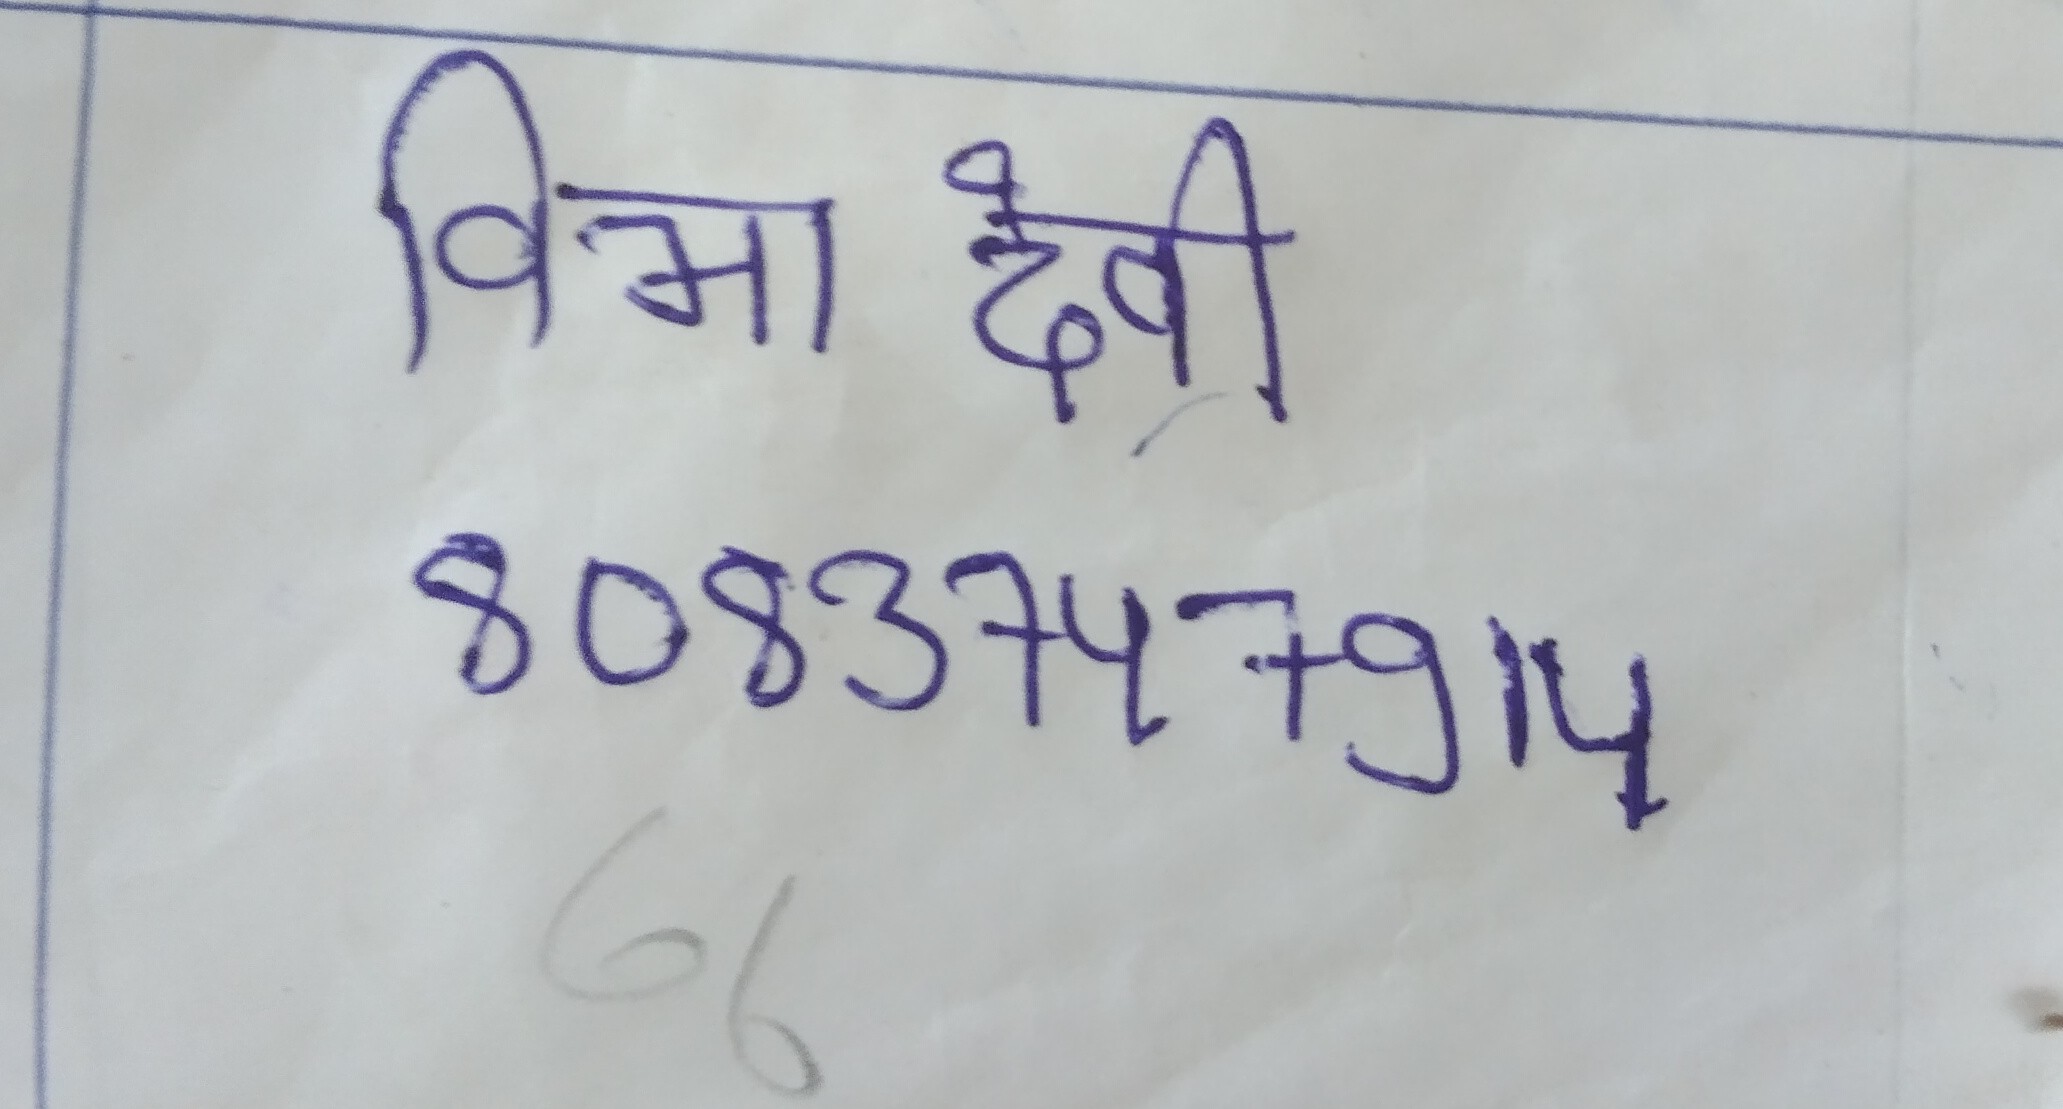 विभा देवी
8083747914
66